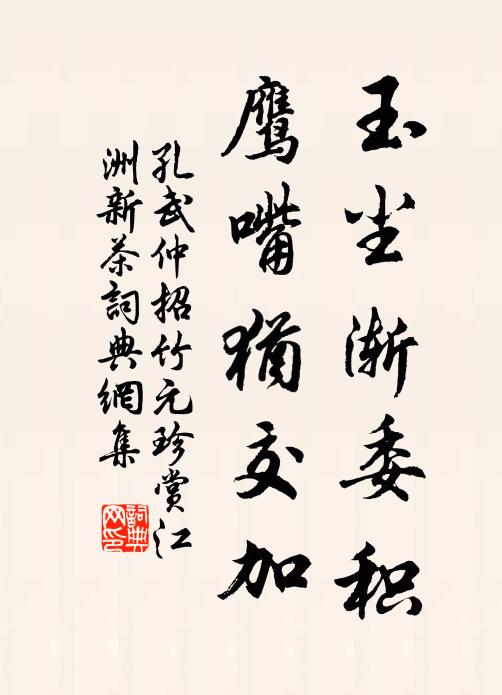 玉尘渐委积
鹰嘴犹交加
孔武仲招竹元珍赏江
洲新茶詞典網集
詞典
网印